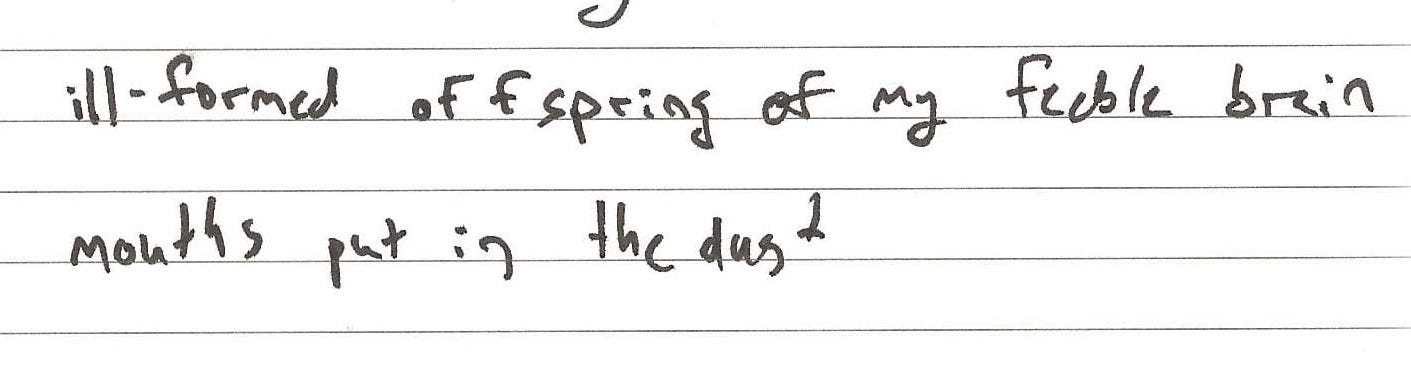 ill-formed offspring of my feeble brain
mouths put in the dust